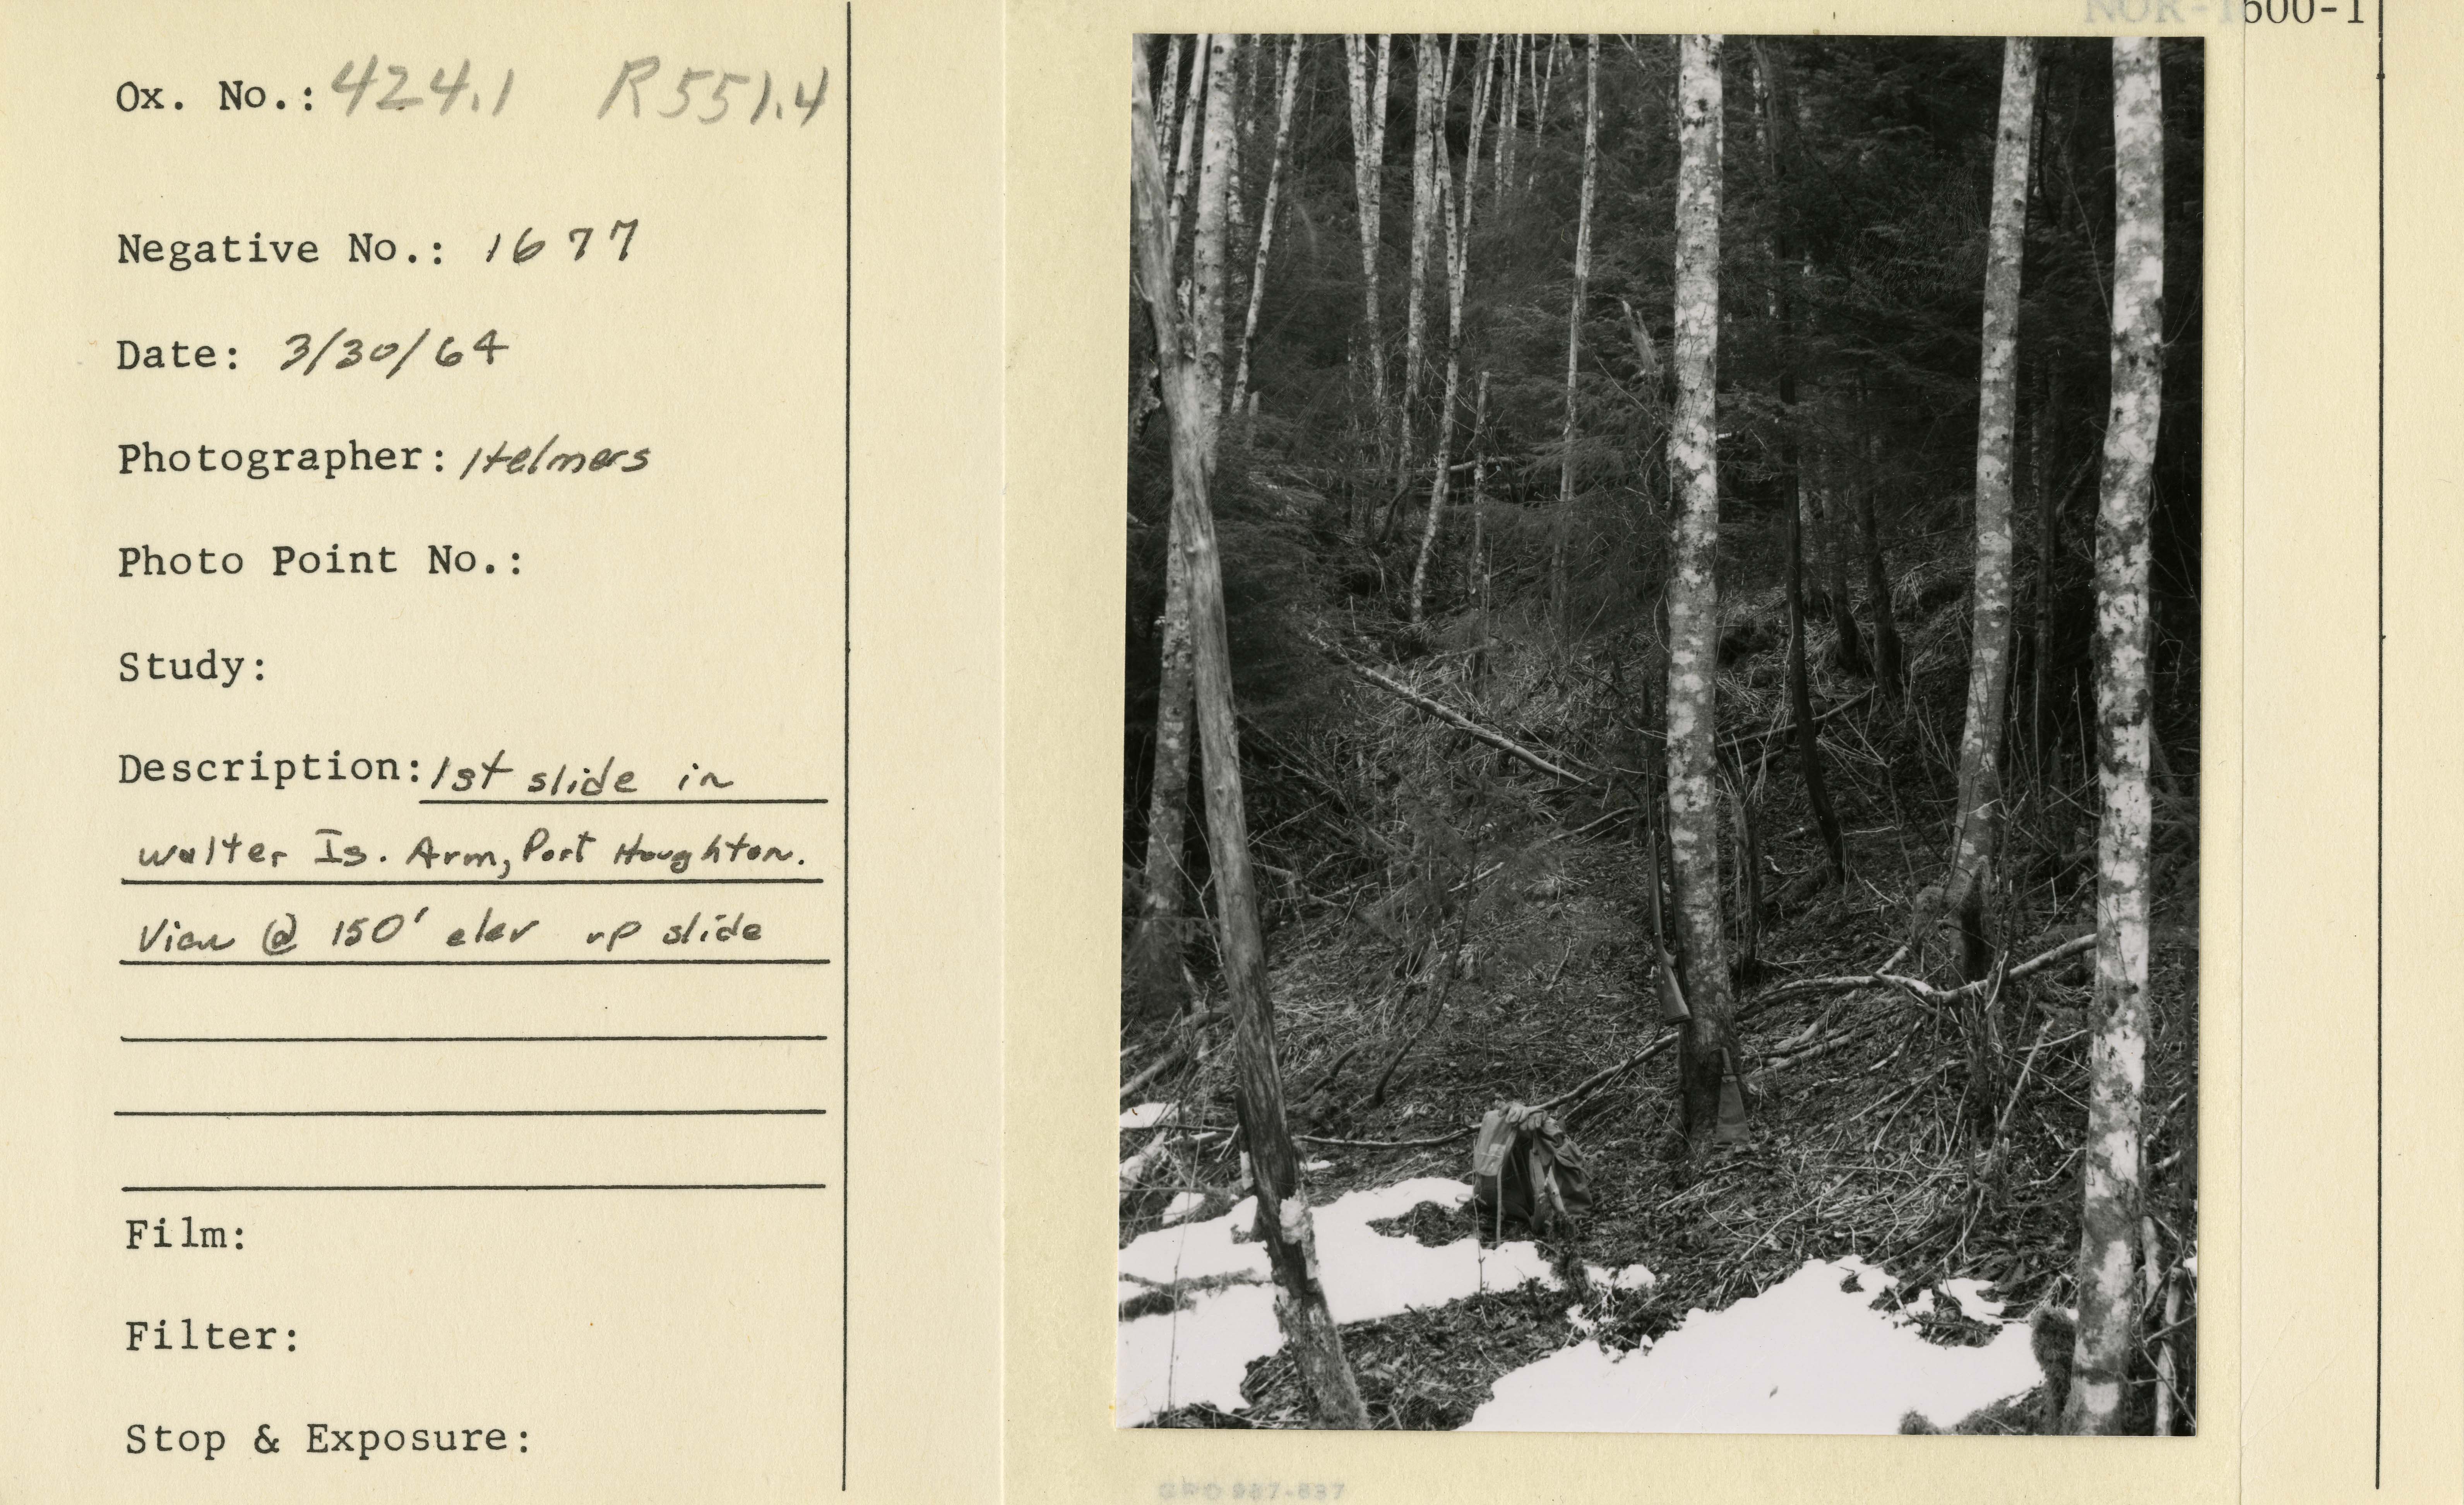 NOR-1600-1
Ox. No.: 424.1 R551.4
Negative No.: 1677
Date: 3/30/64
Photographer: Helmers
Photo Point No.:
Study:
Description: 1st slide in
Walter Is. Arm, Port Houghton.
View @ 150' elev up slide
Film:
Filter:
Stop & Exposure:
GPO 987-837